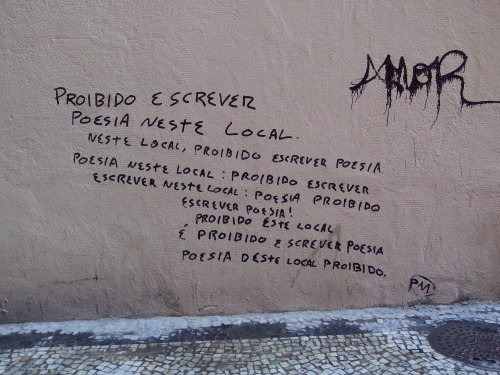 AMOR
PROIBIDO ESCREVER
POESIA NESTE LOCAL.
NESTE LOCAL, PROIBIDO ESCREVER POESIA
POESIA NESTE LOCAL : PROIBIDO ESCREVER
ESCREVER NESTE LOCAL : POESIA PROIBIDO
ESCREVER POESIA!
PROIBIDO ESTE LOCAL
É PROIBIDO ESCREVER POESIA
POESIA DESTE LOCAL PROIBIDO.
PM